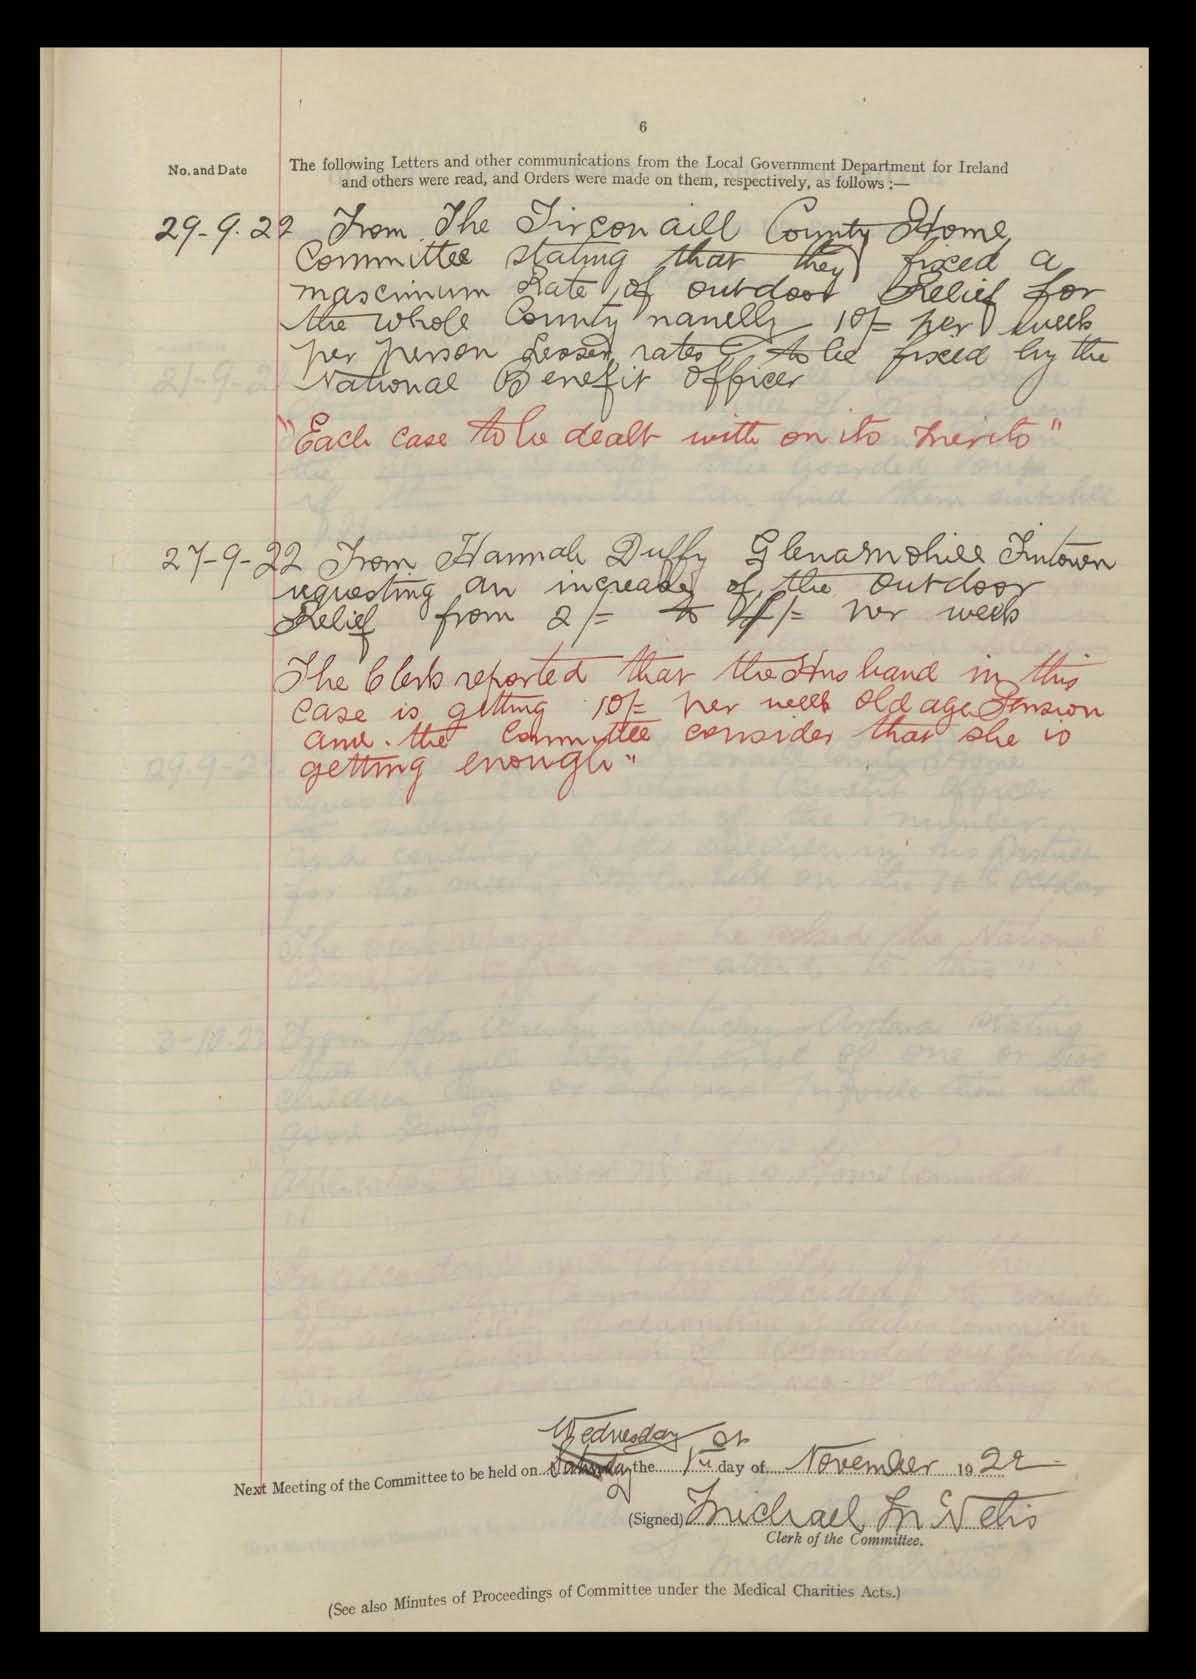 6
No. and Date
The following Letters and other communications from the Local Government Department for Ireland
and others were read, and Orders were made on them, respectively, as follows :—
29-9-22 From The Tirconaill County Home
Committee stating that they fixed a
mascimum Rate of outdoor Relief for
the whole County namelly 10/= per week
per person Lesser rates to be fixed by the
National Benefit Officer
"Each case to be dealt with on its merits"
27-9-22 From Hannah Duffy Fintown
requesting an increase of the outdoor
Relief from 2/= to 4/= per week
The Clerk reported that the Husband in this
case is getting 10/= per week old age Pension
and the Committee consider that she is
getting enough"
Wednesday
Next Meeting of the Committee to be held on Saturday the 1st day of November 1922
(Signed) Michael McNelis
Clerk of the Committee.
(See also Minutes of Proceedings of Committee under the Medical Charities Acts.)